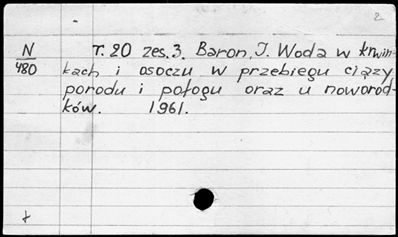 2
N T. 20 zes. 3. Baron, J. Woda w krwin-
480 kach i osoczu w przebiegu ciąży
porodu i połogu oraz u noworod-
ków. 1961.